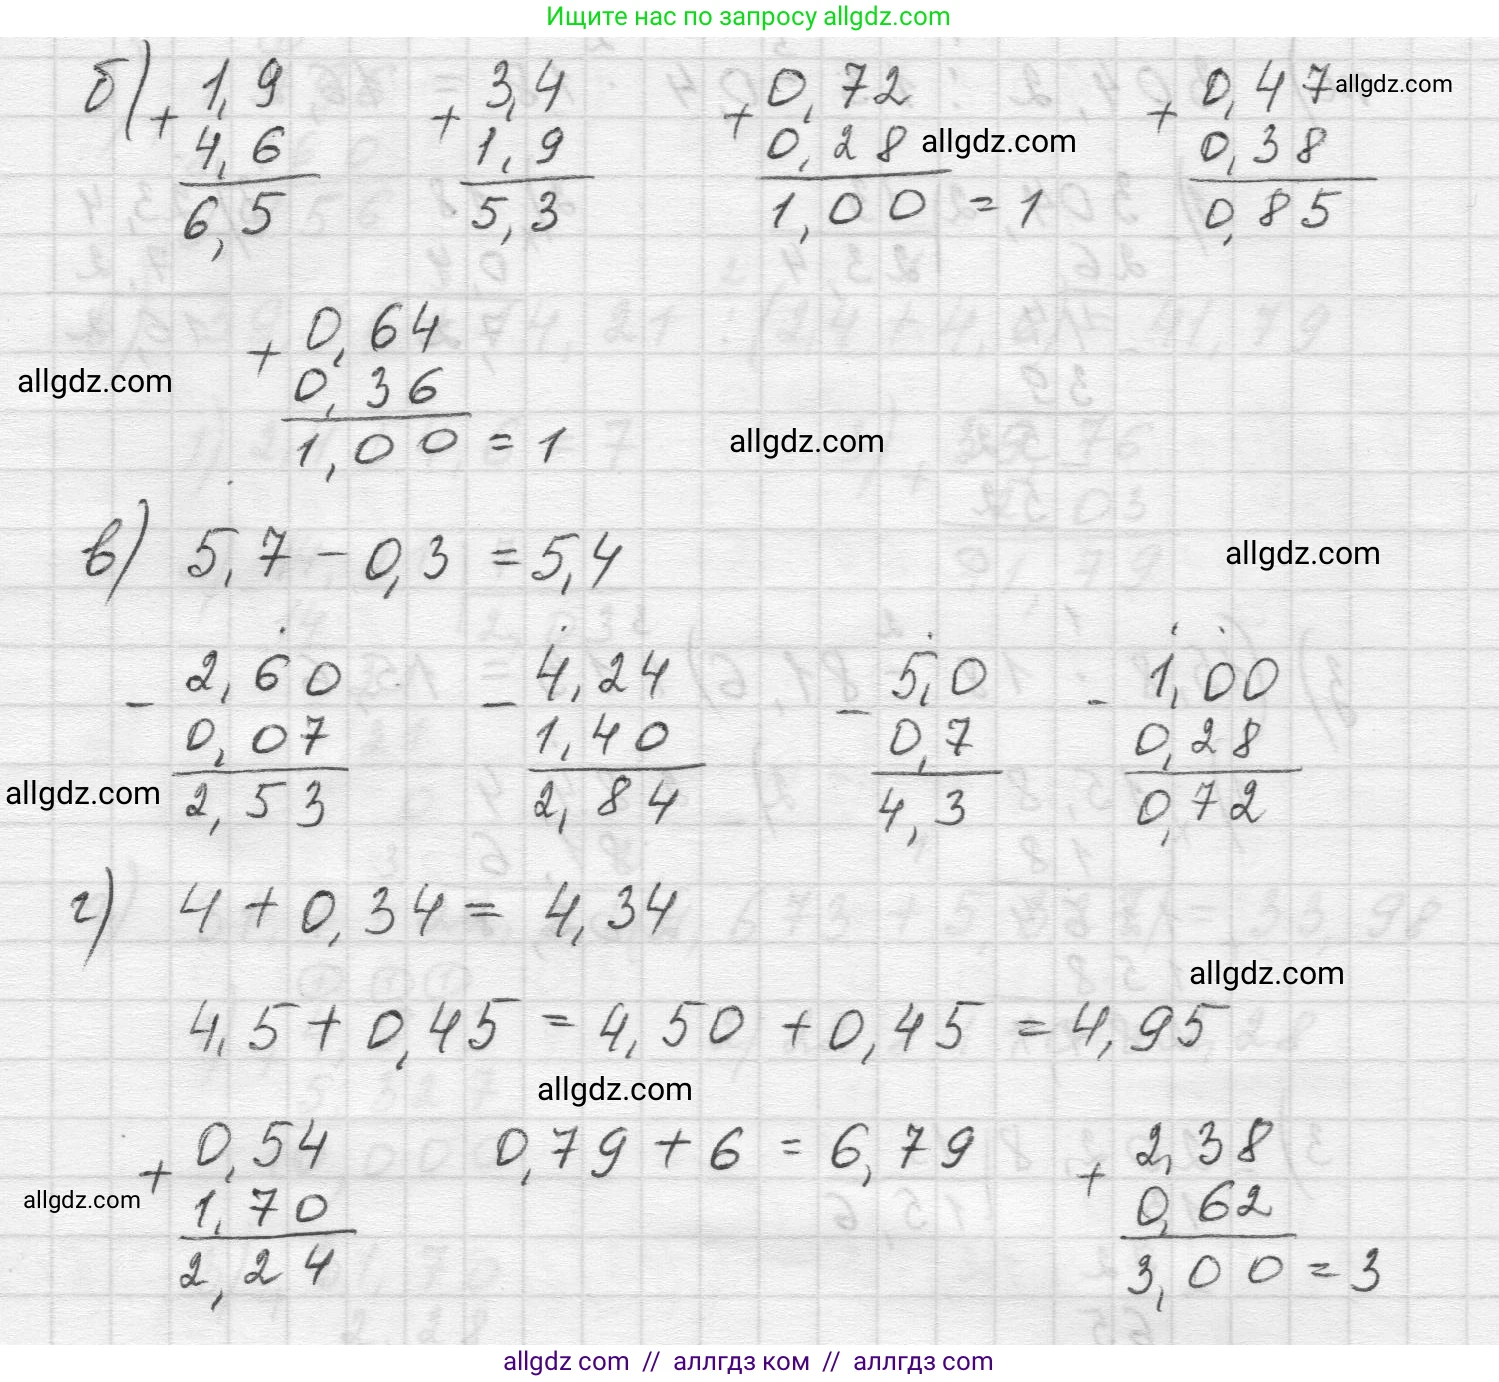 Ищите нас по запросу allgdz.com
б) + 1,9 + 3,4 + 0,72 + 0,47 allgdz.com
4,6 1,9 0,28 allgdz.com 0,38
6,5 5,3 1,00 = 1 0,85
+ 0,64
allgdz.com 0,36
1,00 = 1 allgdz.com
в) 5,7 - 0,3 = 5,4 allgdz.com
- 2,60 - 4,24 - 5,0 - 1,00
0,07 1,40 0,7 0,28
allgdz.com 2,53 2,84 4,3 0,72
г) 4 + 0,34 = 4,34
allgdz.com
4,5 + 0,45 = 4,50 + 0,45 = 4,95
allgdz.com
+ 0,54 0,79 + 6 = 6,79 + 2,38
allgdz.com 1,70 0,62
2,24 3,00 = 3
allgdz com // аллгдз ком // аллгдз com